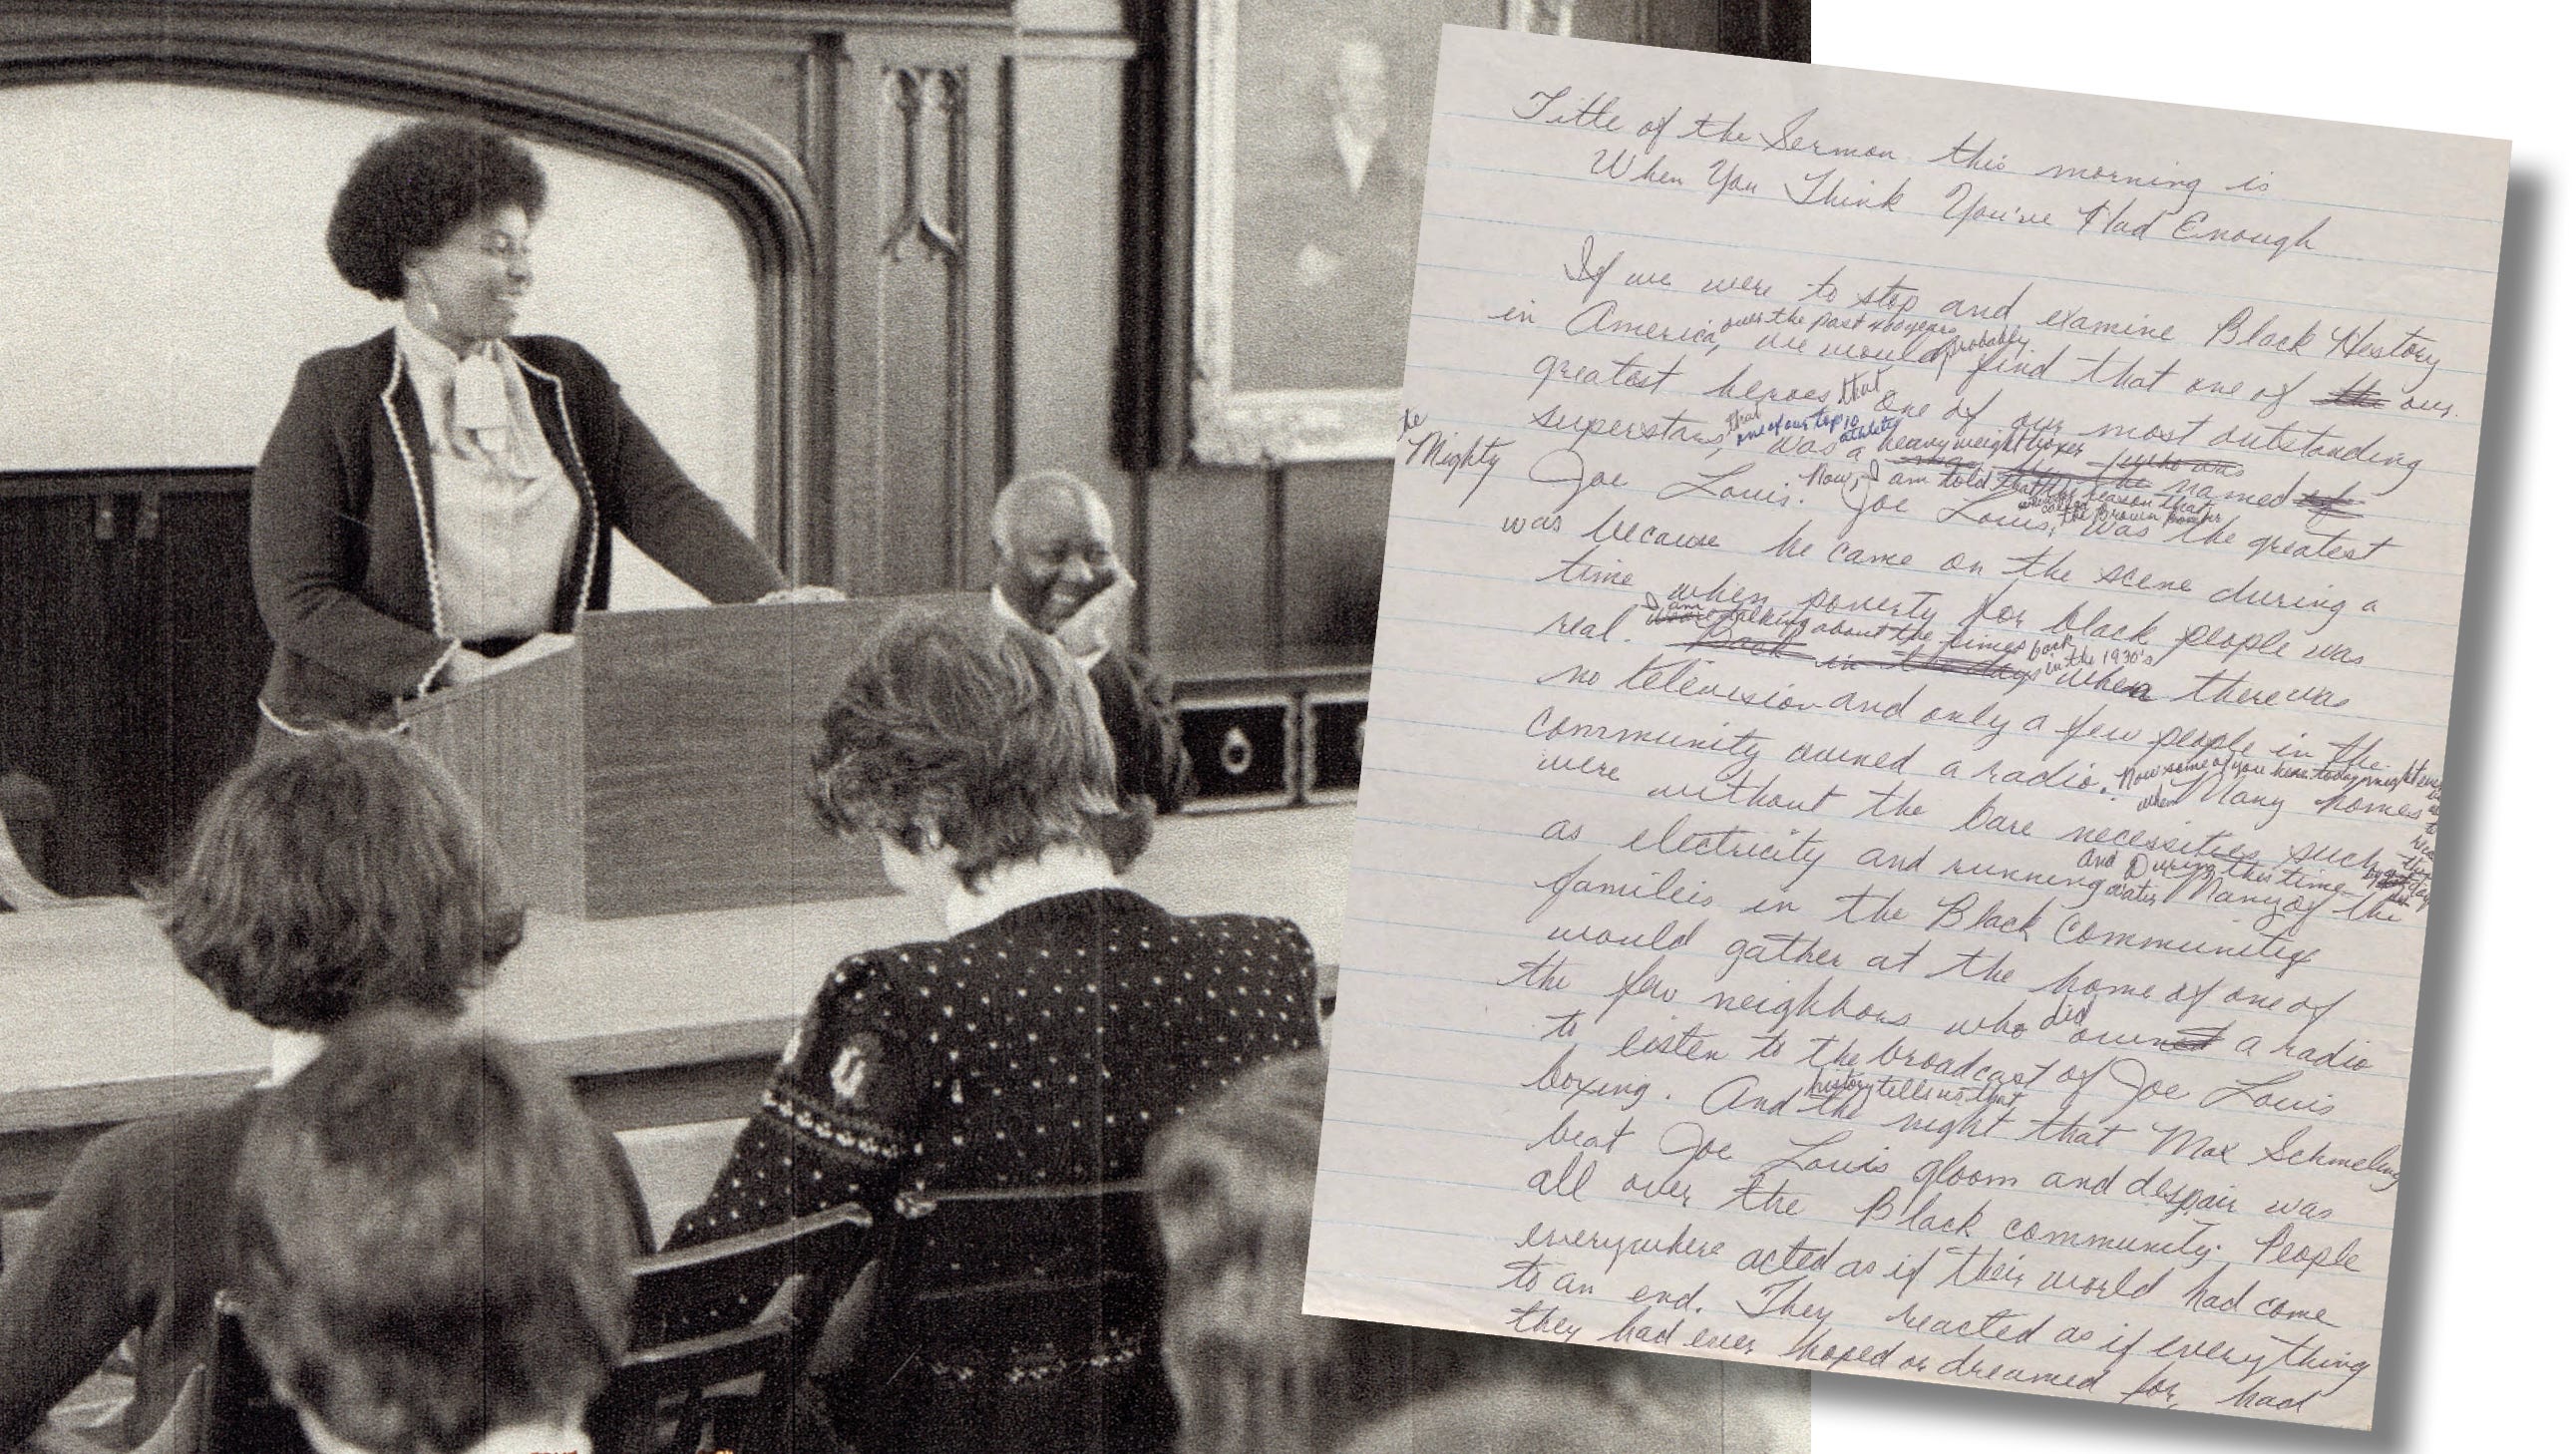 Title of the Sermon this morning is
When You Think You've Had Enough
If we were to stop and examine Black History
over the past 400 years
probably
in America, we would find that one of the our
greatest heroes that one of our most outstanding
that one of our top 10 athletes
heavyweight boxer
superstars, was a who was named of
the
Mighty Joe Louis. Now, I am told that the reason that
called the Brown Bomber
Joe Louis, was the greatest
was because he came on the scene during a
time when poverty for black people was
I am talking about the times back in the 1930's
real. Back in the days when there was
no television and only a few people in the
community owned a radio. Now some of you here today might
when Many homes
were without the bare necessities such
as electricity and running water
and During this time Many of the
families in the Black Community
would gather at the home of one of
the few neighbors who did owned a radio
to listen to the broadcast of Joe Louis
boxing. And history tells us that
the night that Max Schmeling
beat Joe Louis gloom and despair was
all over the Black community. People
everywhere acted as if their world had come
to an end. They reacted as if everything
they had ever hoped or dreamed for, had